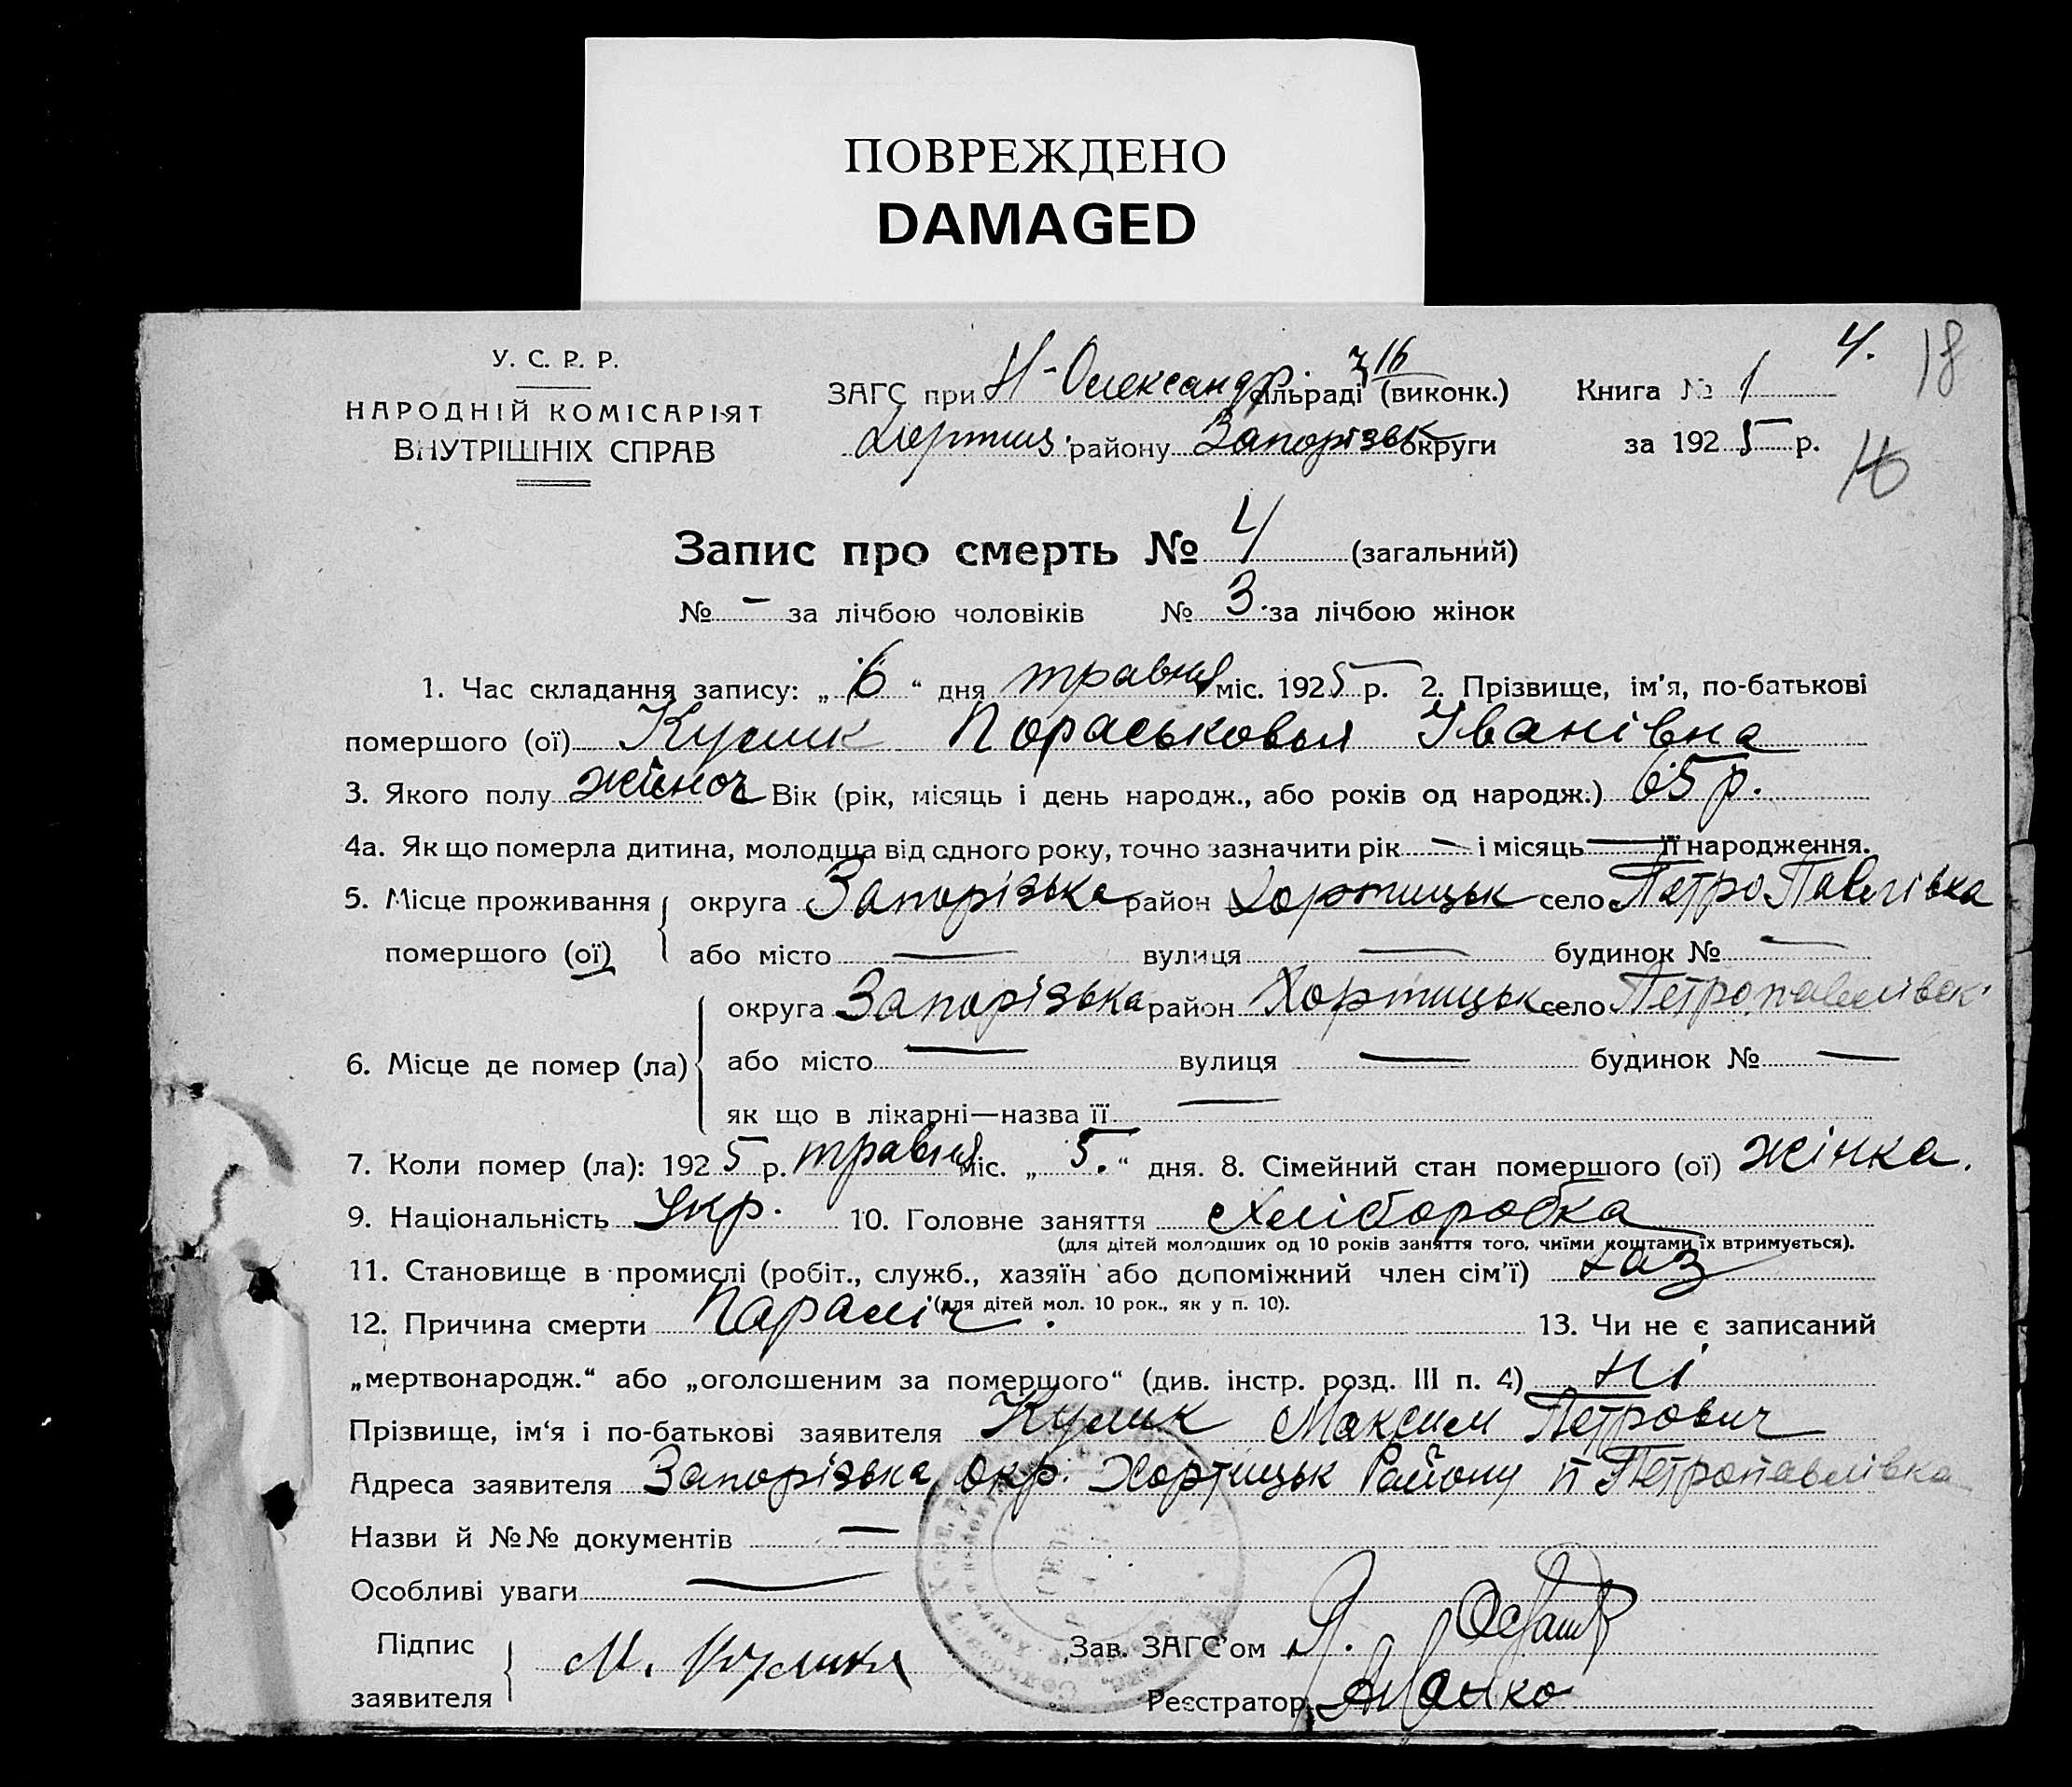 ПОВРЕЖДЕНО
DAMAGED
У. С. Р. Р.
НАРОДНІЙ КОМІСАРІЯТ
ВНУТРІШНІХ СПРАВ
ЗАГС при Н-Олександр. сільраді (виконк.)
16
Хортиц. району Запорізьк округи
Книга № 1
за 1925 р.
4.
18
Запис про смерть № 4 (загальний)
№ — за лічбою чоловіків № 3. за лічбою жінок
1. Час складання запису: „6“ дня травня міс. 1925 р. 2. Прізвище, ім'я, по-батькові
помершого (ої) Кулик Пораськовья Іванівна
3. Якого полу жіноч Вік (рік, місяць і день народж., або років од народж.) 65 р.
4а. Як що померла дитина, молодша від одного року, точно зазначити рік — і місяць — її народження.
5. Місце проживання помершого (ої) округа Запорізька район Хортицьк село Петро Павлівка
або місто — вулиця — будинок № —
6. Місце де помер (ла) округа Запорізька район Хортицьк село Петропавлівск
або місто — вулиця — будинок № —
як що в лікарні—назва її —
7. Коли помер (ла): 1925 р. травня міс. „5.“ дня. 8. Сімейний стан помершого (ої) жінка.
9. Національність Укр. 10. Головне заняття Хліборобка
(для дітей молодших од 10 років заняття того, чиїми коштами їх втримується).
11. Становище в промислі (робіт., служб., хазяїн або допоміжний член сім'ї) хаз
(для дітей мол. 10 рок., як у п. 10).
12. Причина смерти Параліч. 13. Чи не є записаний
„мертвонародж.“ або „оголошеним за помершого“ (див. інстр. розд. III п. 4) Ні
Прізвище, ім‘я і по-батькові заявителя Кулик Максим Петрович
Адреса заявителя Запорізька окр. Хортицьк Району п Петропавлівка
Назви й №№ документів —
Особливі уваги —
Підпис заявителя М. Кулика
Зав. ЗАГС'ом
Реєстратор